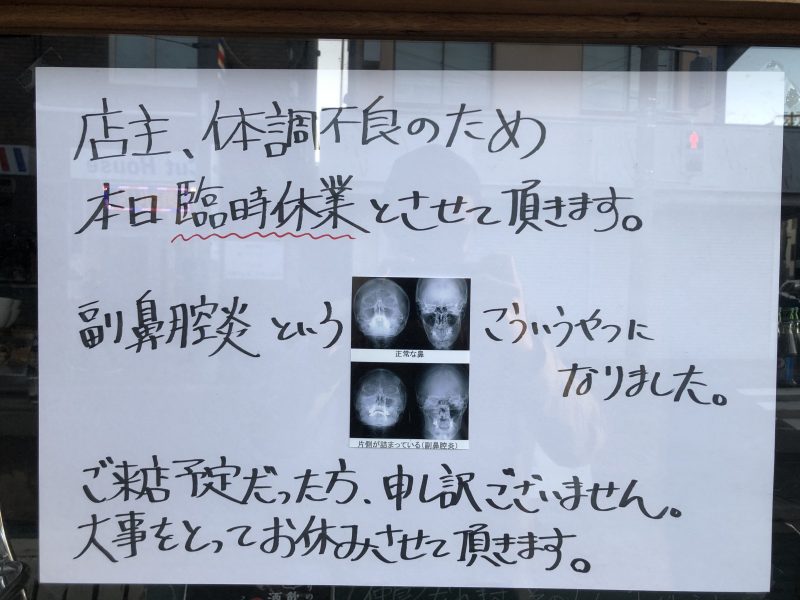 店主、体調不良のため
本日臨時休業とさせて頂きます。
副鼻腔炎という
正常な鼻
片側が詰まっている(副鼻腔炎)
こういうやつに
なりました。
ご来店予定だった方、申し訳ございません。
大事をとってお休みさせて頂きます。